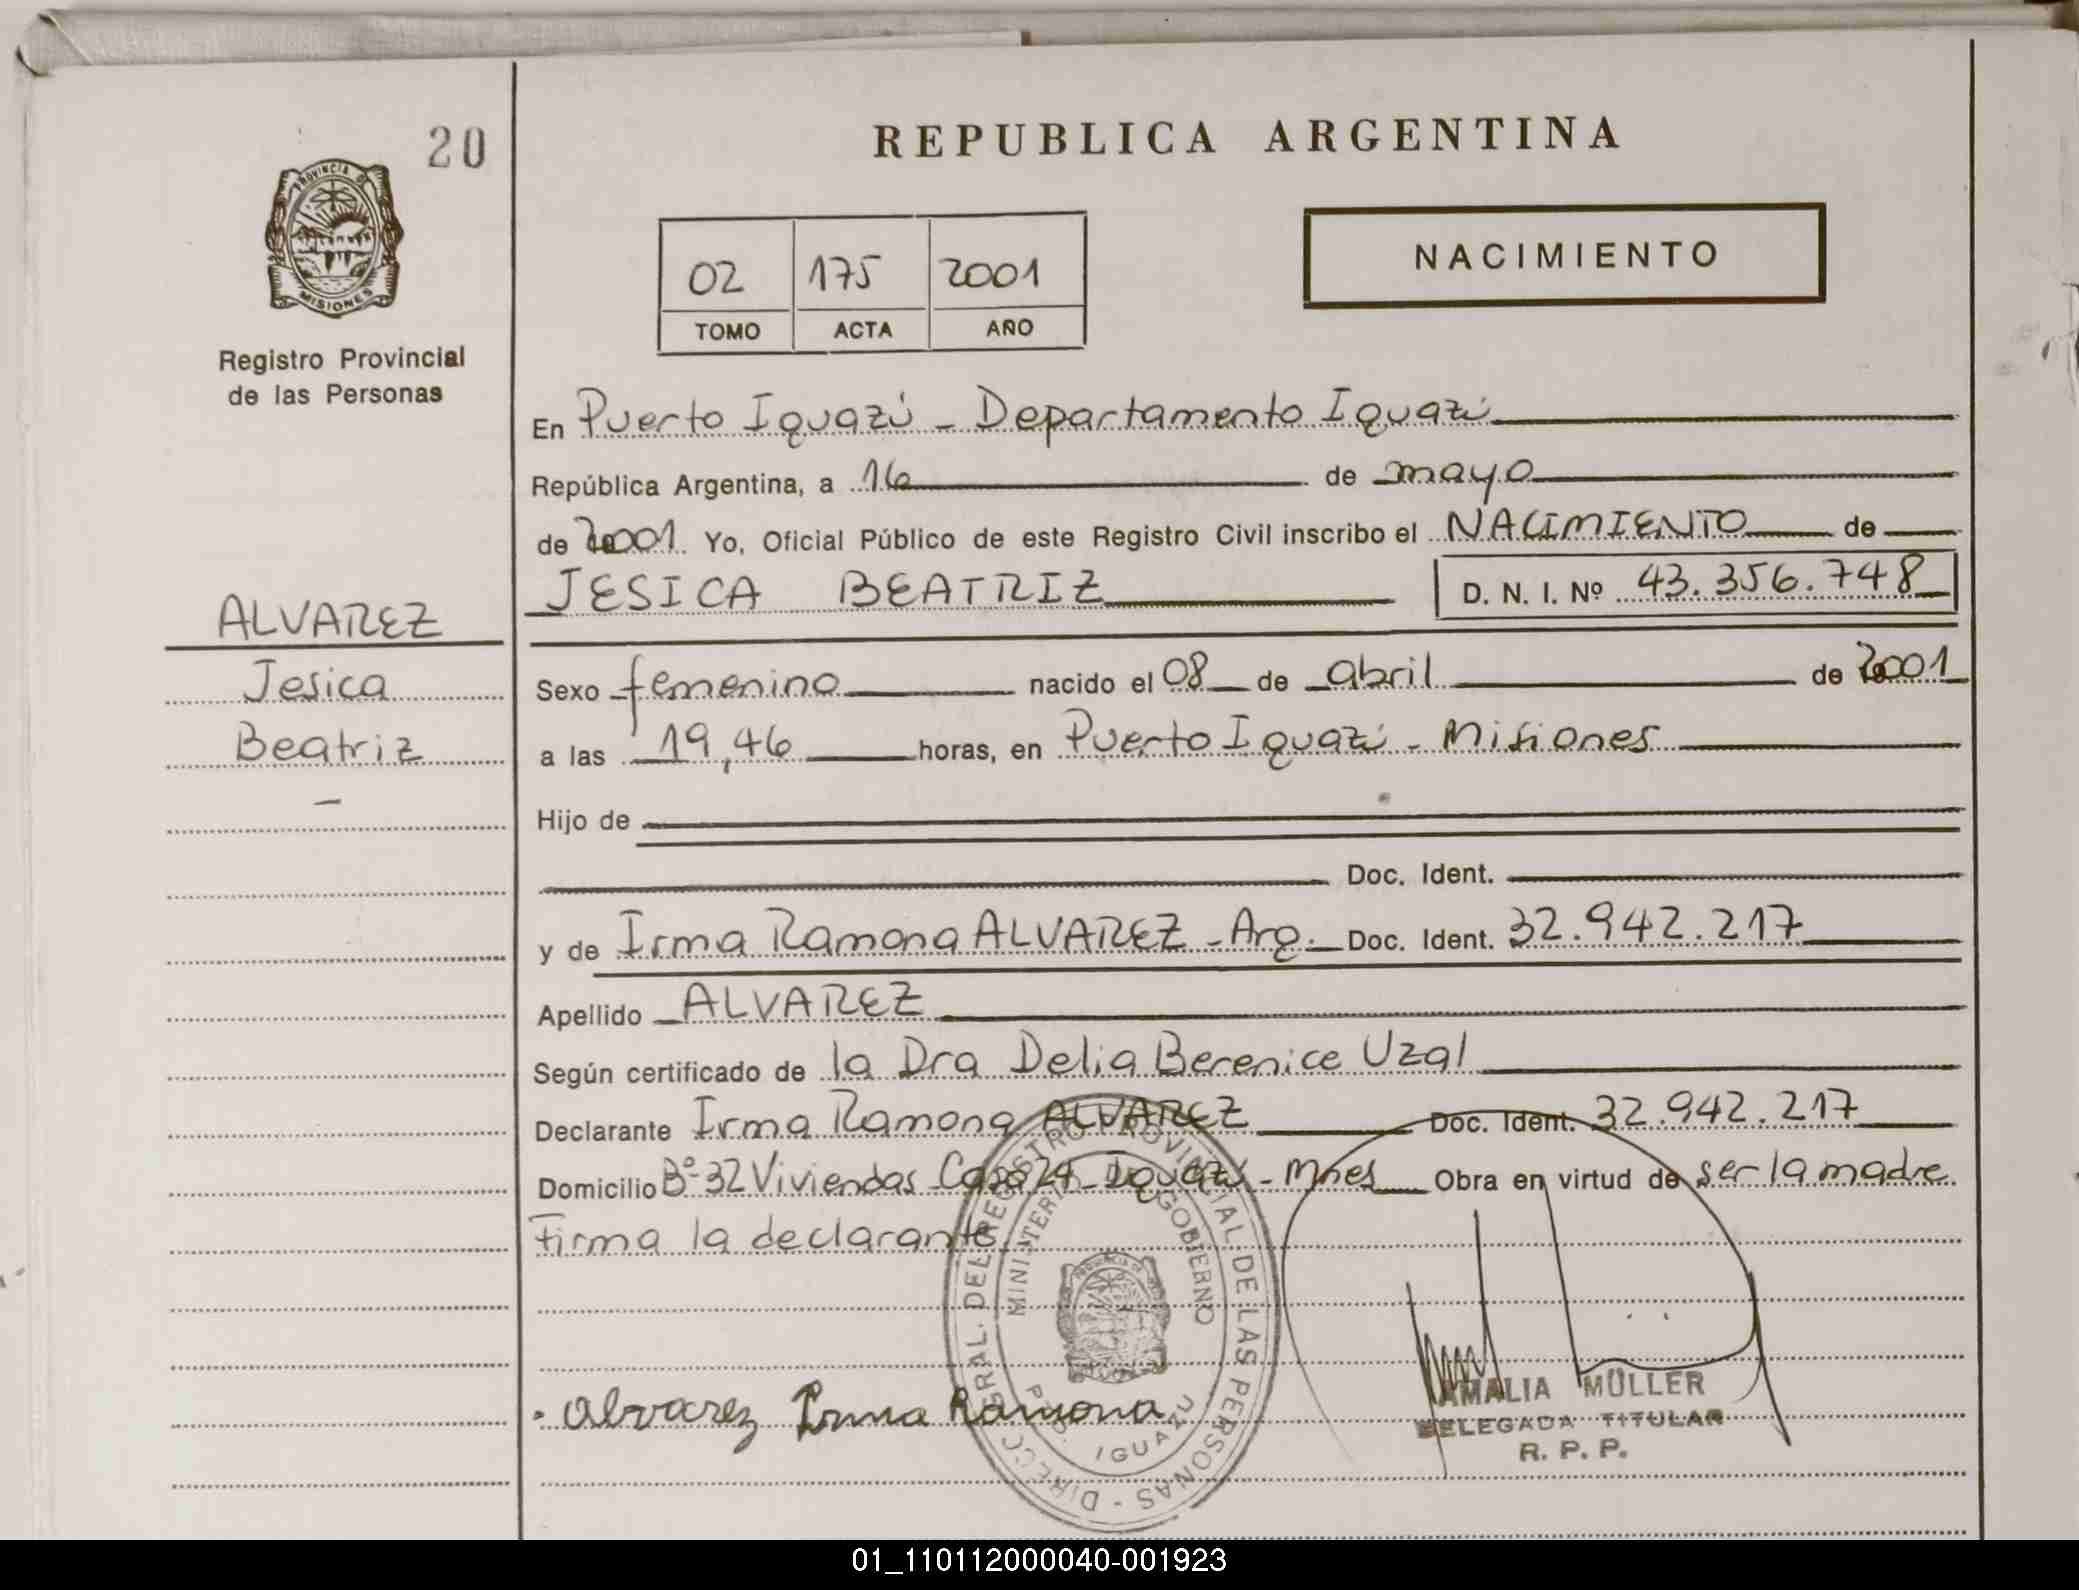 20
PROVINCIA DE
MISIONES
Registro Provincial
de las Personas
ALVAREZ
Jesica
Beatriz
–
REPUBLICA ARGENTINA
NACIMIENTO
02 175 2001
TOMO ACTA AÑO
En Puerto Iguazú - Departamento Iguazú
República Argentina, a 16 de mayo
de 2001. Yo, Oficial Público de este Registro Civil inscribo el NACIMIENTO de
JESICA BEATRIZ D. N. I. Nº 43.356.748
Sexo femenino nacido el 08 de abril de 2001
a las 19,46 horas, en Puerto Iguazú - Misiones
Hijo de
Doc. Ident.
y de Irma Ramona ALVAREZ - Arg. Doc. Ident. 32.942.217
Apellido ALVAREZ
Según certificado de la Dra Delia Berenice Uzal
Declarante Irma Ramona ALVAREZ Doc. Ident. 32.942.217
Domicilio Bº 32 Viviendas Casa 24 - Iguazú - Mnes Obra en virtud de ser la madre
Firma la declarante.
DIRECC. GRAL. DEL REGISTRO PROVINCIAL DE LAS PERSONAS -
MINISTERIO DE GOBIERNO
IGUAZU
Alvarez Irma Ramona
AMALIA MÜLLER
DELEGADA TITULAR
R. P. P.
01_110112000040-001923